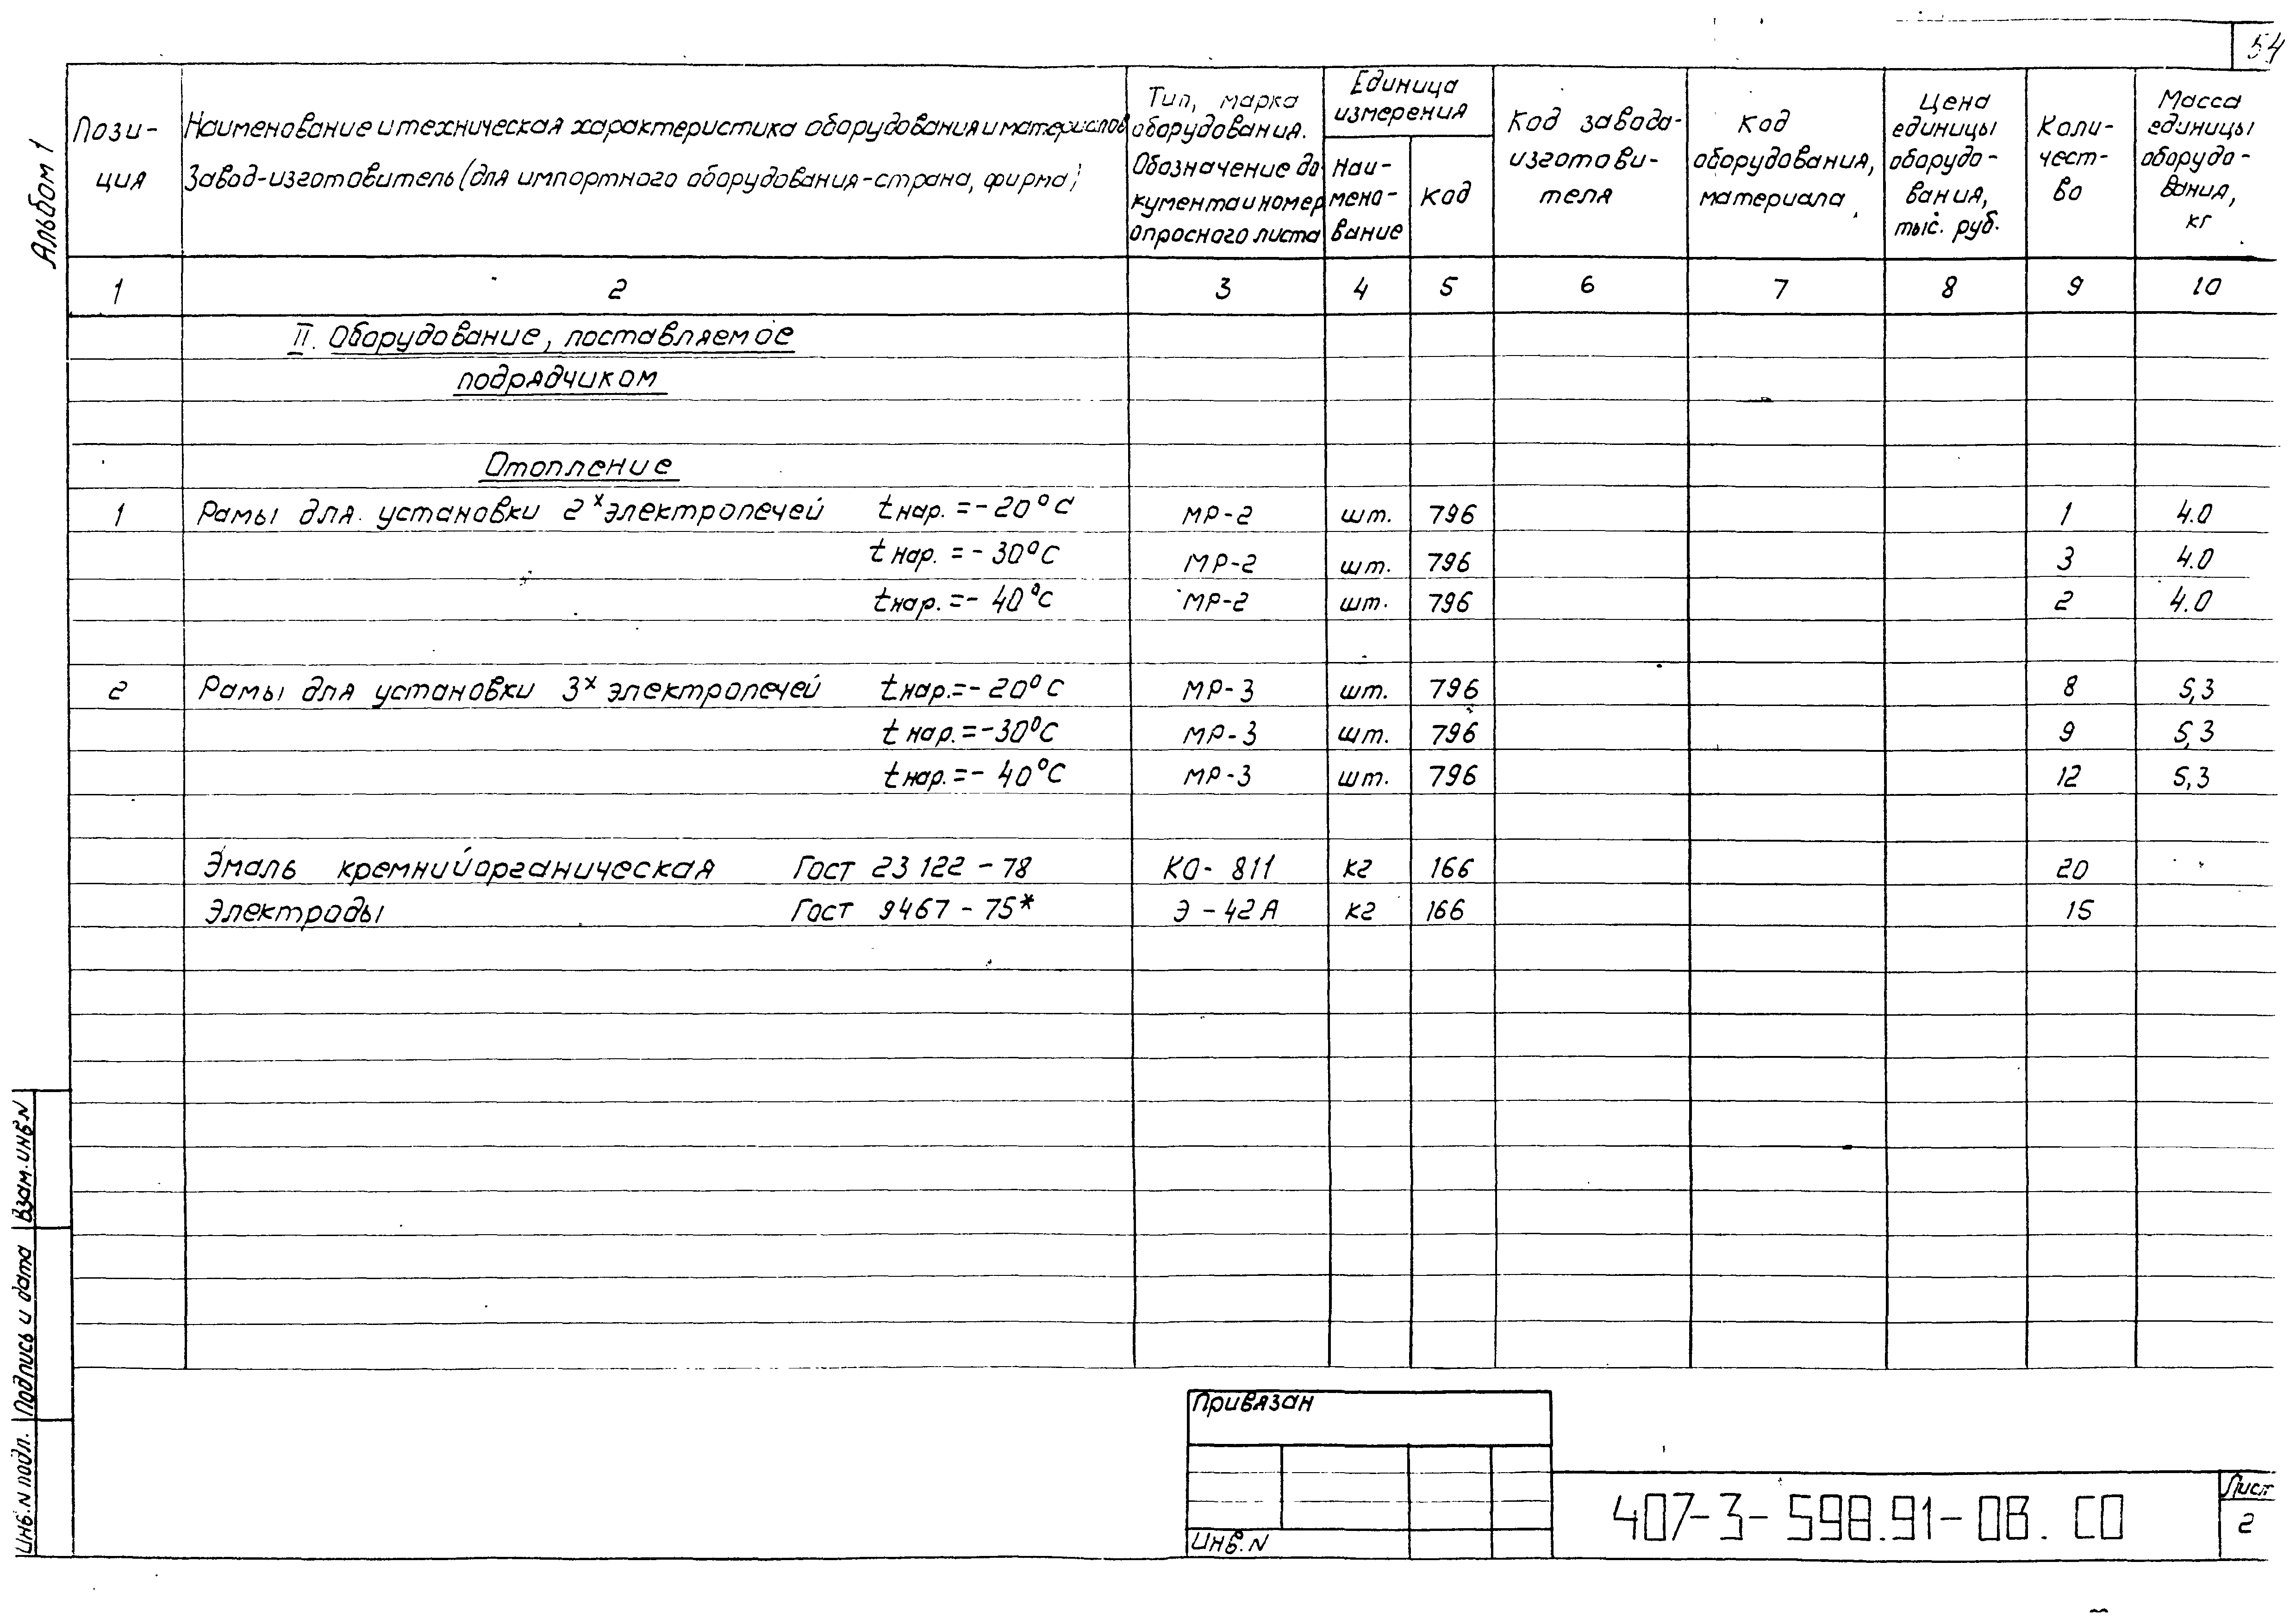 54
Альбом 1
Пози-
ция
Наименование и техническая характеристика оборудования и материалов
Завод-изготовитель (для импортного оборудования - страна, фирма)
Тип, марка
оборудования.
Обозначение до-
кумента и номер
опросного листа
Единица
измерения
Наи-
мено-
вание
Код
Код завода-
изготови-
теля
Код
оборудования,
материала
Цена
единицы
оборудо-
вания,
тыс. руб.
Коли-
чест-
во
Масса
единицы
оборудо-
вания,
кг
1 2 3 4 5 6 7 8 9 10
II. Оборудование, поставляемое
подрядчиком
Отопление
1 Рамы для установки 2х электропечей tнар. = -20°С МР-2 шт. 796 1 4.0
tнар. = -30°С МР-2 шт. 796 3 4.0
tнар. = -40°С МР-2 шт. 796 2 4.0
2 Рамы для установки 3х электропечей tнар. = -20°С МР-3 шт. 796 8 5,3
tнар. = -30°С МР-3 шт. 796 9 5,3
tнар. = -40°С МР-3 шт. 796 12 5,3
Эмаль кремнийорганическая Гост 23122-78 КО-811 кг 166 20
Электроды Гост 9467-75* Э-42А кг 166 15
Взам. инв. N
Подпись и дата
Инв. N подл.
Привязан
Инв. N
407-3-598.91-ОВ. СО
Лист
2